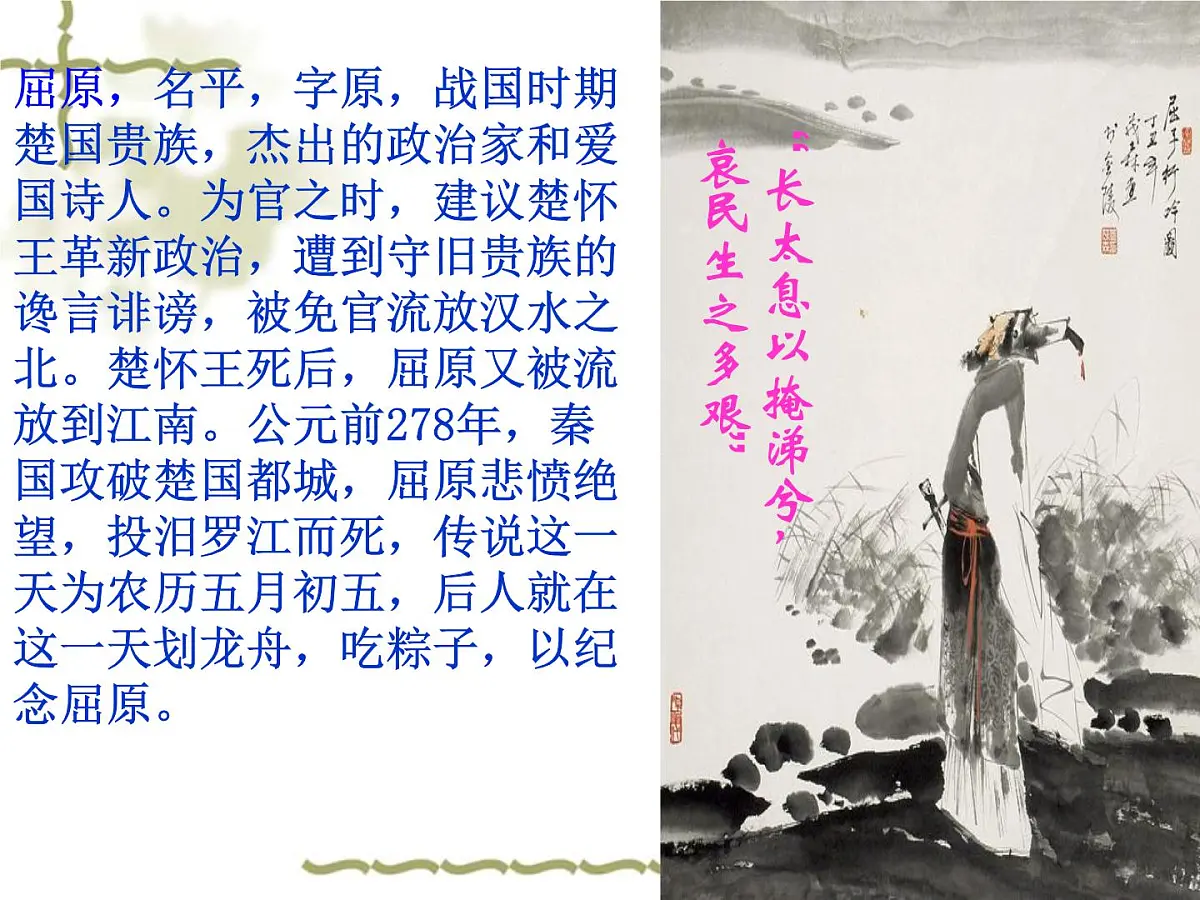 屈原，名平，字原，战国时期
楚国贵族，杰出的政治家和爱
国诗人。为官之时，建议楚怀
王革新政治，遭到守旧贵族的
谗言诽谤，被免官流放汉水之
北。楚怀王死后，屈原又被流
放到江南。公元前278年，秦
国攻破楚国都城，屈原悲愤绝
望，投汨罗江而死，传说这一
天为农历五月初五，后人就在
这一天划龙舟，吃粽子，以纪
念屈原。
“长太息以掩涕兮，
哀民生之多艰”
屈子行吟图
丁丑年
茂森画
于金陵